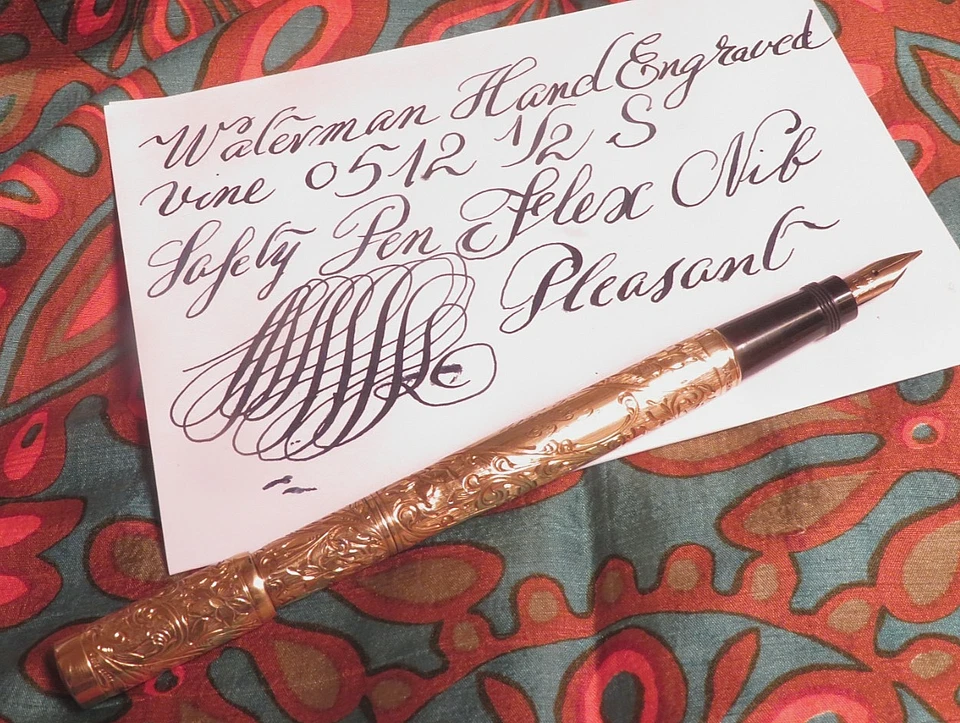 Waterman Hand Engraved
vine 0512 1/2 S
Safety Pen Flex Nib
Pleasant